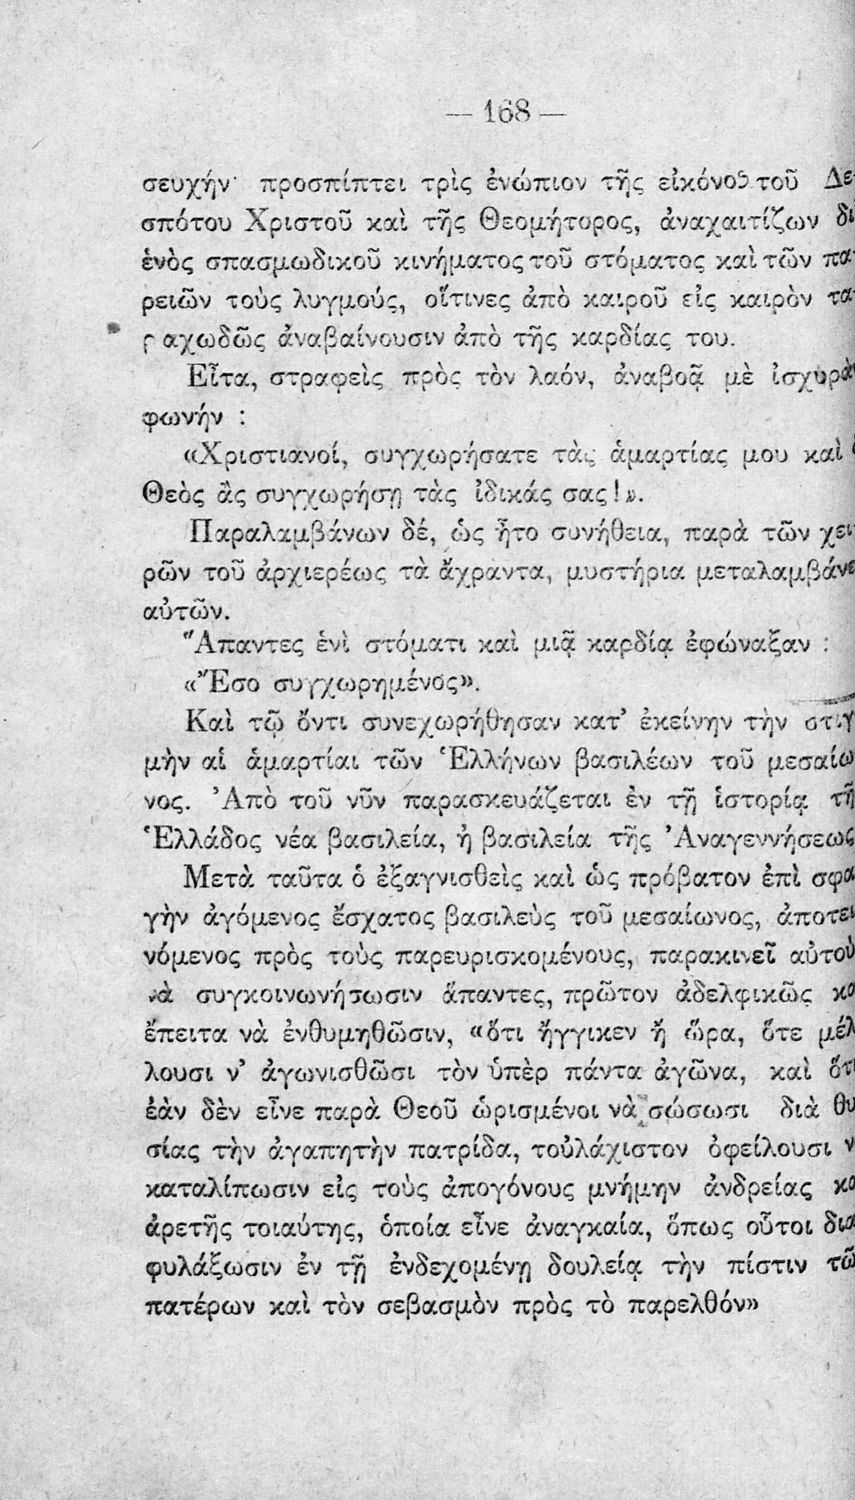 — 168 —
σευχήν· προσπίπτει τρὶς ἐνώπιον τῆς εἰκόνος τοῦ Δε
σπότου Χριστοῦ καὶ τῆς Θεομήτορος, ἀναχαιτίζων δι
ἑνὸς σπασμωδικοῦ κινήματος τοῦ στόματος καὶ τῶν πα
ρειῶν τοὺς λυγμούς, οἵτινες ἀπὸ καιροῦ εἰς καιρὸν τα
ραχωδῶς ἀναβαίνουσιν ἀπὸ τῆς καρδίας του.
Εἶτα, στραφεὶς πρὸς τὸν λαόν, ἀναβοᾷ μὲ ἰσχυρὰν
φωνήν :
«Χριστιανοί, συγχωρήσατε τὰς ἁμαρτίας μου καὶ
Θεὸς ἂς συγχωρήσῃ τὰς ἰδικάς σας!».
Παραλαμβάνων δέ, ὡς ἦτο συνήθεια, παρὰ τῶν χει
ρῶν τοῦ ἀρχιερέως τὰ ἄχραντα, μυστήρια μεταλαμβάνε
αὐτῶν.
Ἅπαντες ἑνὶ στόματι καὶ μιᾷ καρδίᾳ ἐφώναξαν :
«Ἔσο συγχωρημένος».
Καὶ τῷ ὄντι συνεχωρήθησαν κατ’ ἐκείνην τὴν στιγ
μὴν αἱ ἁμαρτίαι τῶν Ἑλλήνων βασιλέων τοῦ μεσαίω
νος. Ἀπὸ τοῦ νῦν παρασκευάζεται ἐν τῇ ἱστορίᾳ τῆ
Ἑλλάδος νέα βασιλεία, ἡ βασιλεία τῆς Ἀναγεννήσεως
Μετὰ ταῦτα ὁ ἐξαγνισθεὶς καὶ ὡς πρόβατον ἐπὶ σφα
γὴν ἀγόμενος ἔσχατος βασιλεὺς τοῦ μεσαίωνος, ἀποτει
νόμενος πρὸς τοὺς παρευρισκομένους, παρακινεῖ αὐτοὺ
νὰ συγκοινωνήσωσιν ἅπαντες, πρῶτον ἀδελφικῶς κα
ἔπειτα νὰ ἐνθυμηθῶσιν, «ὅτι ἤγγικεν ἤ ὥρα, ὅτε μέλ
λουσι ν’ ἀγωνισθῶσι τὸν ὑπὲρ πάντα ἀγῶνα, καὶ ὅτι
ἐὰν δὲν εἶνε παρὰ Θεοῦ ὡρισμένοι νὰ σώσωσι διὰ θυ
σίας τὴν ἀγαπητὴν πατρίδα, τοὐλάχιστον ὀφείλουσι ν
καταλίπωσιν εἰς τοὺς ἀπογόνους μνήμην ἀνδρείας κα
ἀρετῆς τοιαύτης, ὁποία εἶνε ἀναγκαία, ὅπως οὗτοι δια
φυλάξωσιν ἐν τῇ ἐνδεχομένῃ δουλείᾳ τὴν πίστιν τῶ
πατέρων καὶ τὸν σεβασμὸν πρὸς τὸ παρελθόν»